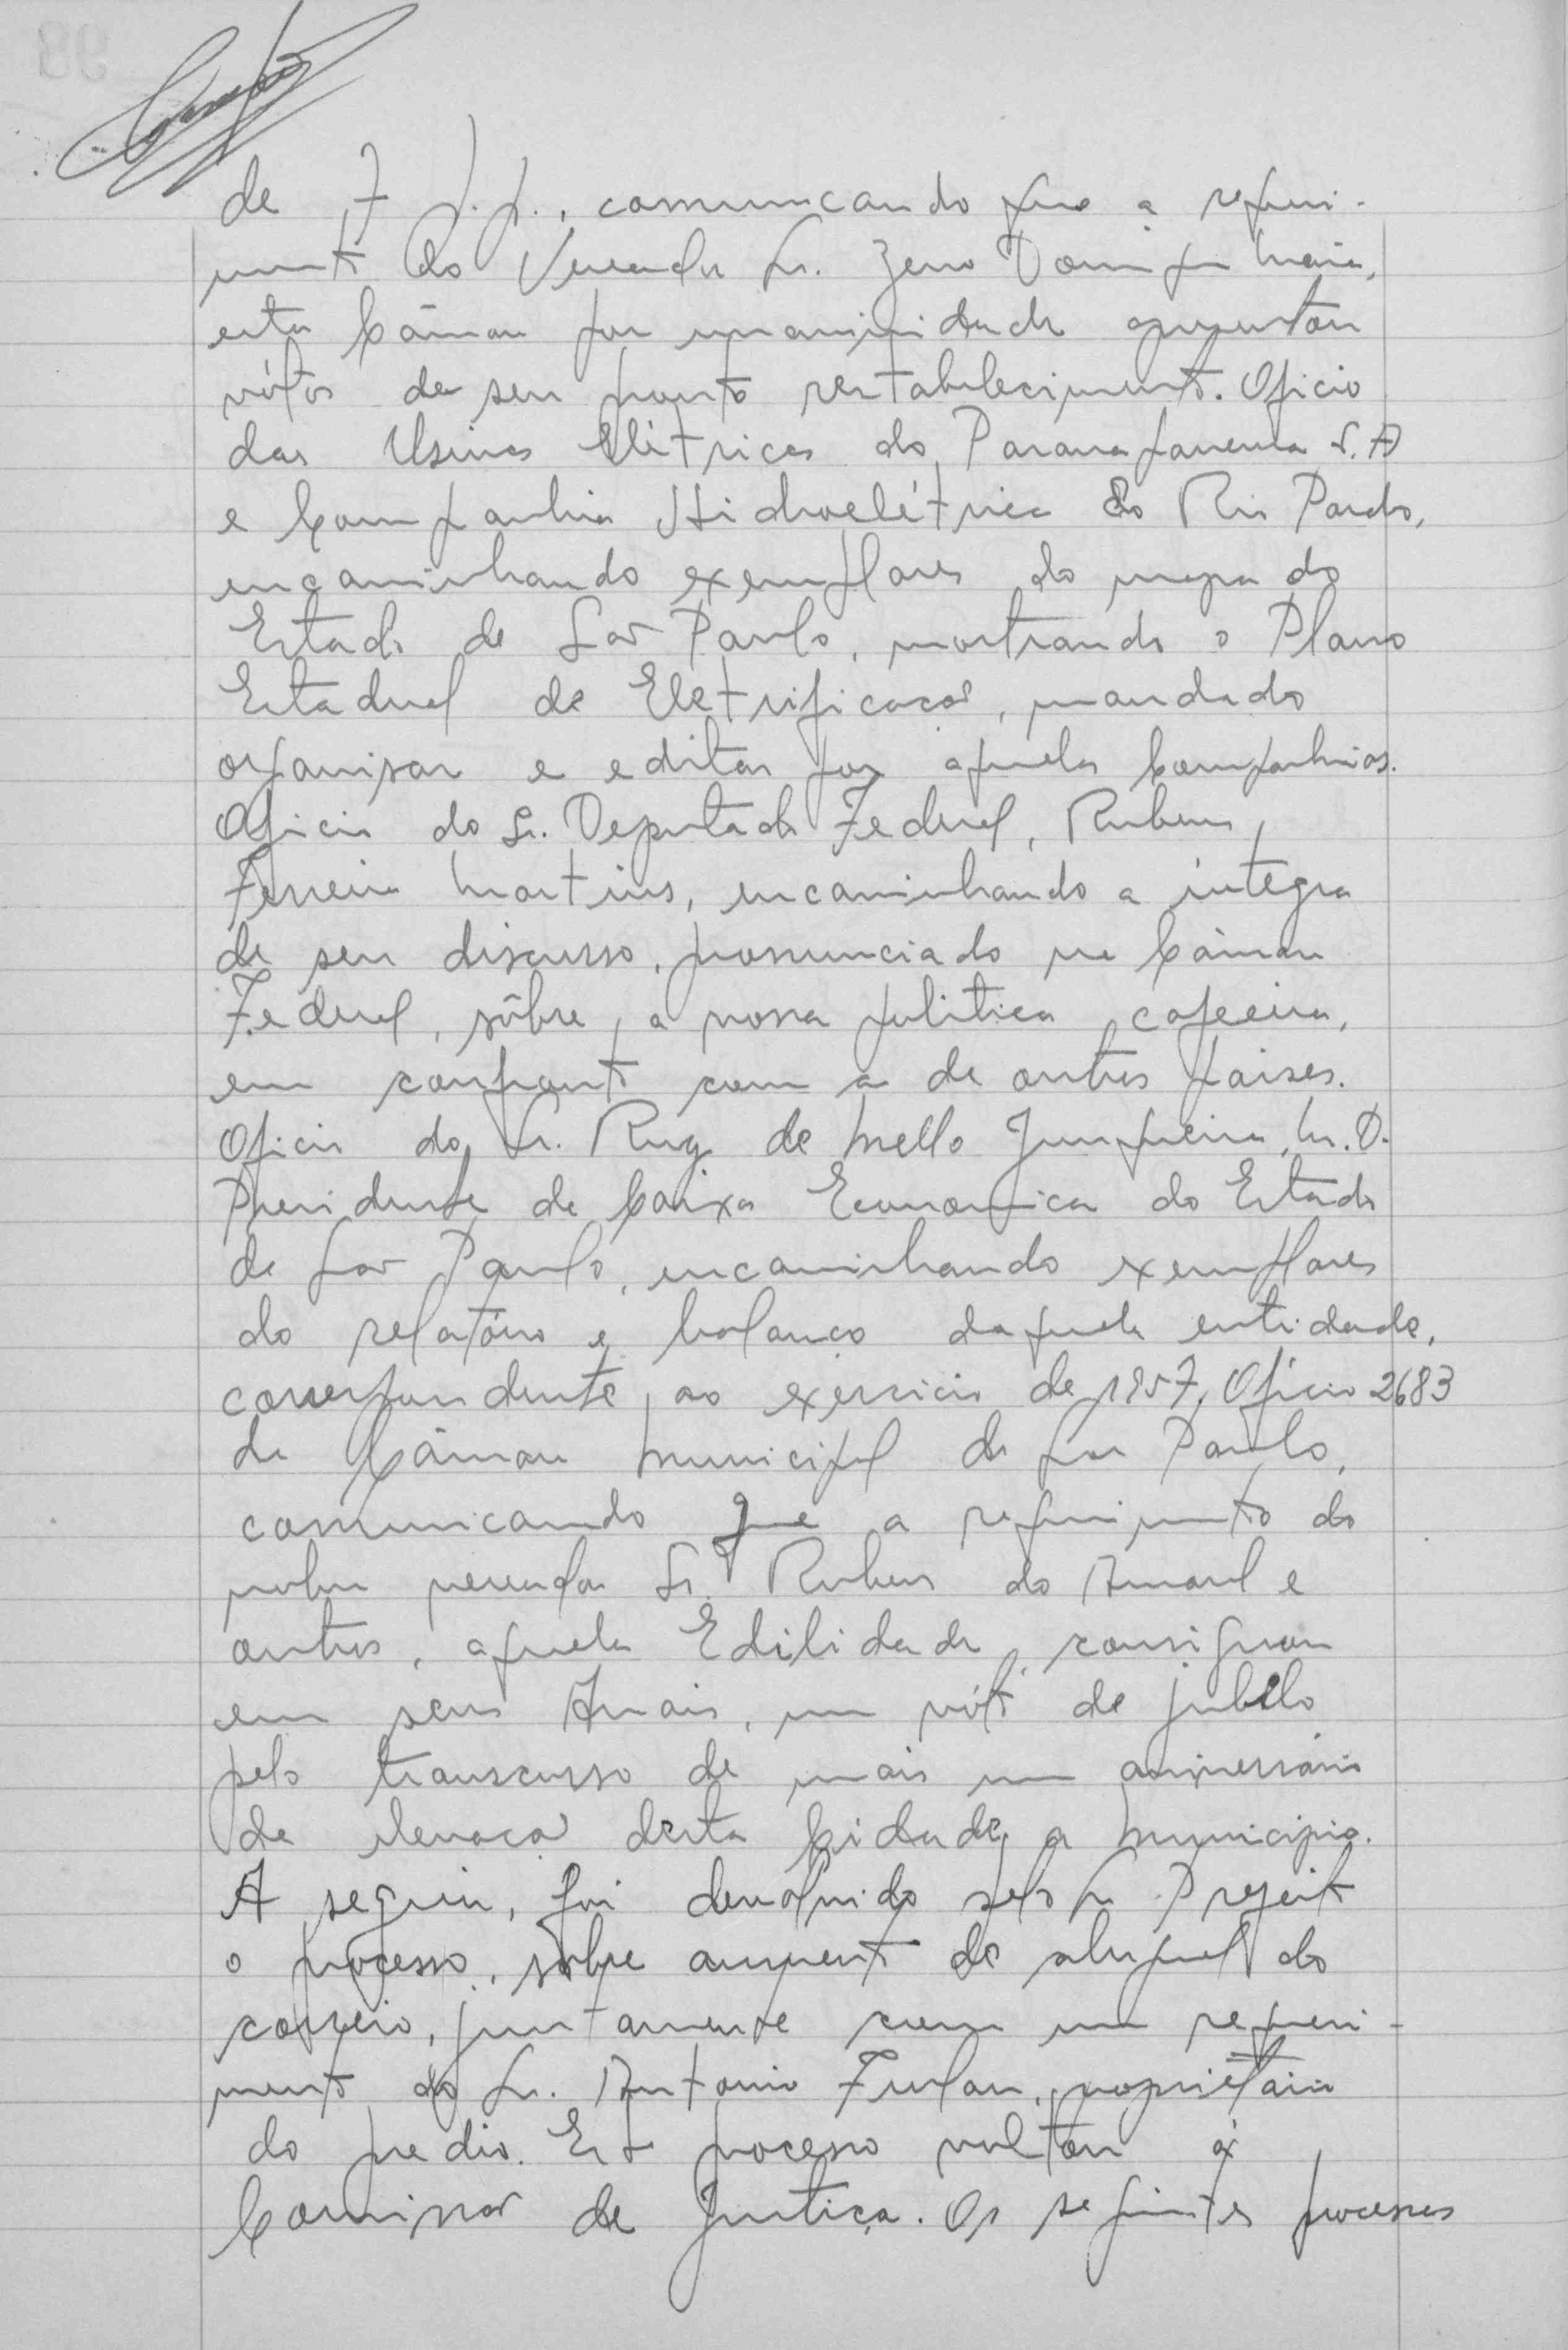 de 7 p.p., comunicando que a requeri-
mento do Vereador Sr. Zeno Domingu Maia,
esta Câmara por unanimidade apresentou
vótos de seu pronto restabelecimento. Oficio
das Usinas Elétricas do Paranapanema S.A
e Companhia Hidroelétrica do Rio Pardo,
encaminhando exemplares do mapa do
Estado de São Paulo, mostrando o Plano
Estadual de Eletrificação, mandado
organisar e editar por aquelas Companhias.
Oficio do Sr. Deputado Federal, Rubens
Ferreira Martins, encaminhando a integra
de seu discurso, pronunciado na Câmara
Federal, sôbre a nossa politica cafeeira,
em confronto com a de outros paises.
Oficio do Sr. Ruy de Mello Junqueira, M.D.
Presidente da Caixa Economica do Estado
de São Paulo, encaminhando exemplares
do relatório e balanço daquela entidade,
correspondente ao exercicio de 1957. Oficio 2683
da Câmara Municipal de São Paulo,
comunicando que a requerimento do
nobre vereador Sr. Rubens do Amaral e
outros, aquela Edilidade, consignou
em seus Anais, um vóto de jubilo
pelo transcurso de mais um aniversário
da elevação desta Cidade a Municipio.
A seguir, foi devolvido pelo Sr. Prefeito
o processo, sôbre aumento de aluguel do
correio, juntamente com um requeri-
mento do Sr. Antonio Furlan, proprietário
do predio. Este processo voltou à
Comissão de Justiça. Os seguintes processos